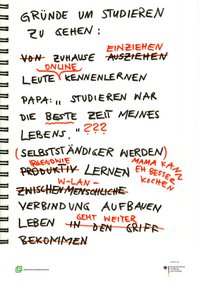 GRÜNDE UM STUDIEREN
ZU GEHEN:
EINZIEHEN
VON ZUHAUSE AUSZIEHEN
ONLINE
LEUTE KENNENLERNEN
PAPA: „STUDIEREN WAR
DIE BESTE ZEIT MEINES
LEBENS." ???
(SELBSTSTÄNDIGER WERDEN)
IRGENDWIE
MAMA KANN
EH BESSER
KOCHEN
PRODUKTIV LERNEN
W-LAN-
ZWISCHENMENSCHLICHE
VERBINDUNG AUFBAUEN
GEHT WEITER
LEBEN IN DEN GRIFF
BEKOMMEN